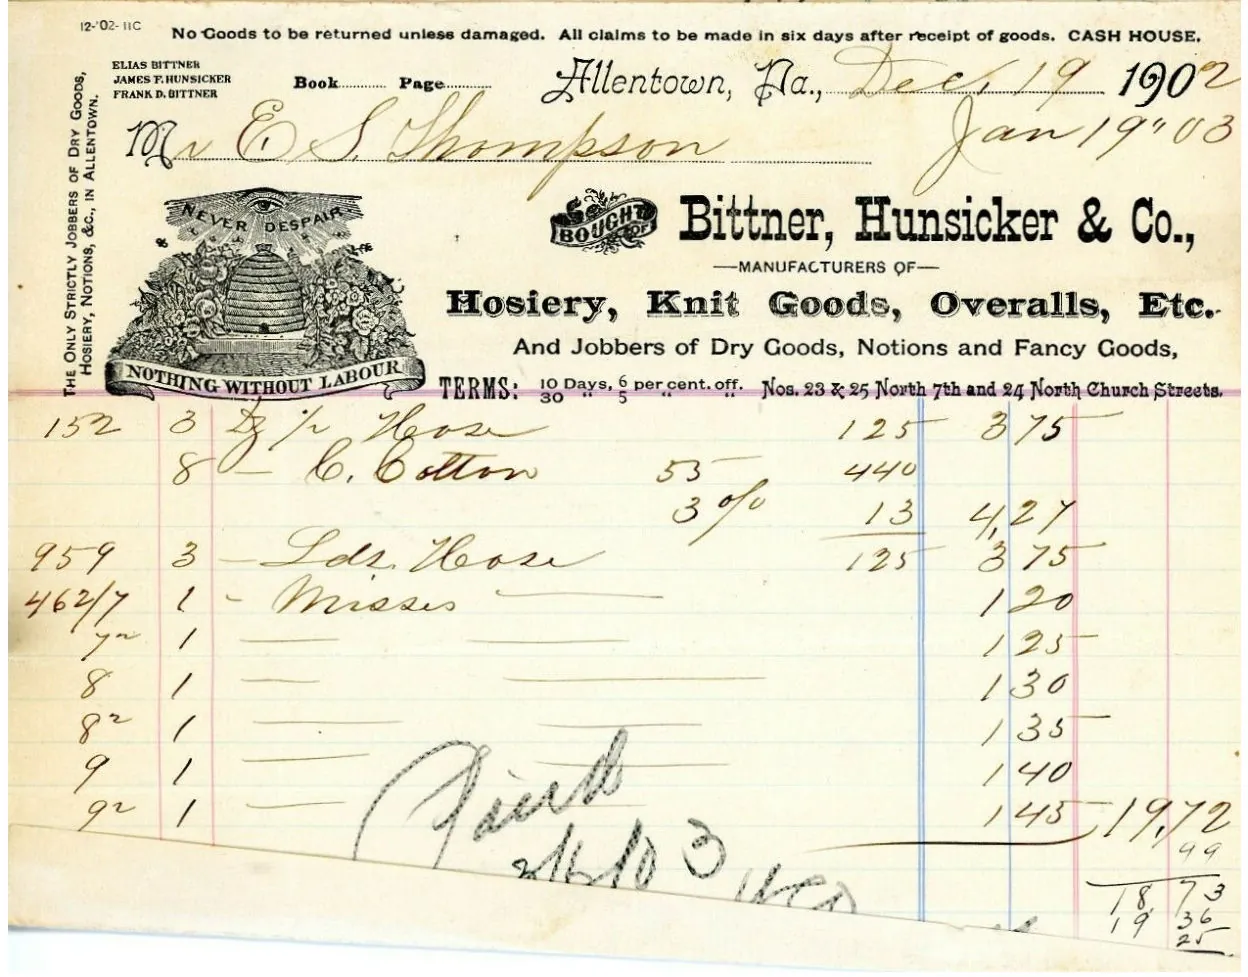 12-'02-11C
No Goods to be returned unless damaged. All claims to be made in six days after receipt of goods. CASH HOUSE.
ELIAS BITTNER
JAMES F. HUNSICKER
FRANK D. BITTNER
Book........ Page........
Allentown, Pa., Dec. 19 1902
Jan 19" 03
Mr E S. Thompson
THE ONLY STRICTLY JOBBERS OF DRY GOODS,
HOSIERY, NOTIONS, &C., IN ALLENTOWN.
NEVER DESPAIR
NOTHING WITHOUT LABOUR
BOUGHT OF
Bittner, Hunsicker & Co.,
—MANUFACTURERS OF—
Hosiery, Knit Goods, Overalls, Etc.
And Jobbers of Dry Goods, Notions and Fancy Goods,
TERMS: 10 Days, 6 per cent. off.
30 " 5 " "
Nos. 23 & 25 North 7th and 24 North Church Streets.
152 3 Dz 1/2 Hose 125 3 75
8 – C. Cotton 55 440
3 % 13 4,27
959 3 – Lds. Hose 125 3 75
462/7 1 - Misses 1 20
7² 1 1 25
8 1 1 30
8² 1 1 35
9 1 1 40
9² 1 1 45 19,72
99
18 73
19 36
25